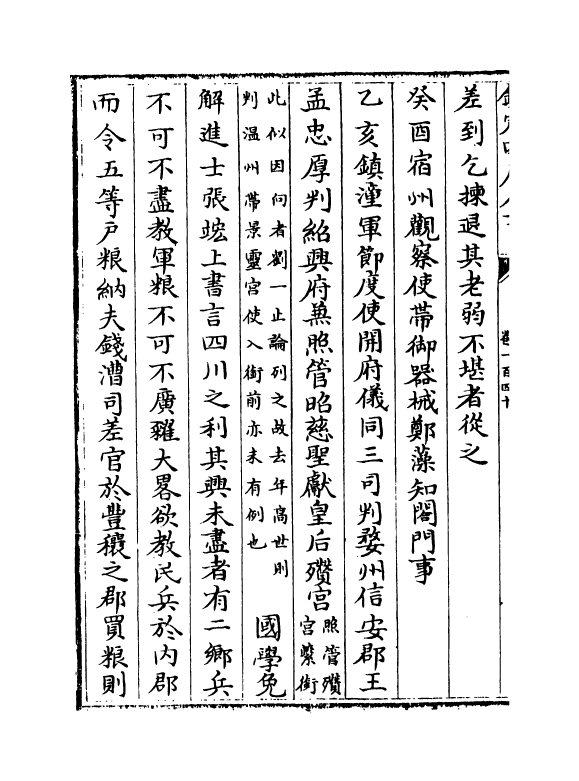 卷一百四十
差到乞揀退其老弱不堪者從之
癸酉宿州觀察使帶御器械鄭藻知閤門事
乙亥鎮潼軍節度使開府儀同三司判婺州信安郡王
孟忠厚判紹興府兼照管昭慈聖獻皇后殯宮
照管殯
宮繫銜
此似因向者劉一止論列之故去年高世則
判温州帶景靈宮使入銜前亦未有例也
國學免
解進士張竑上書言四川之利其興未盡者有二鄉兵
不可不盡教軍粮不可不廣糴大畧欲教民兵於内郡
而令五等戶粮納夫錢漕司差官於豐穰之郡買粮則